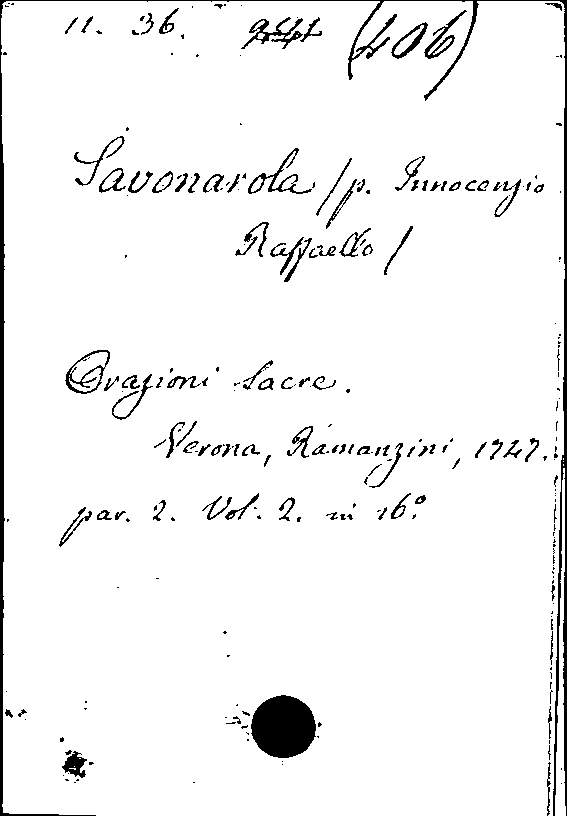 11. 36. (406)
Savonarola /p. Innocenzio
Raffaello /
Orazioni Sacre.
Verona, Ramanzini, 1727.
par. 2. Vol. 2. in 16º.